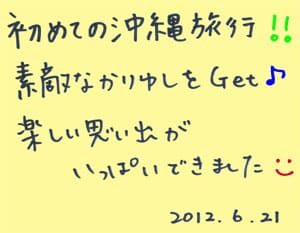 初めての沖縄旅行!!
素敵なかりゆしをGet♪
楽しい思い出が
いっぱいできました
2012.6.21